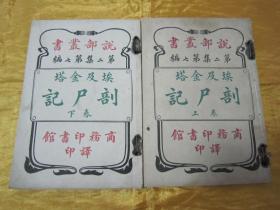 說部叢書
第二集第七編
埃及金塔
剖尸記
卷上
商務印書館
譯印
說部叢書
第二集第七編
埃及金塔
剖尸記
卷下
商務印書館
譯印